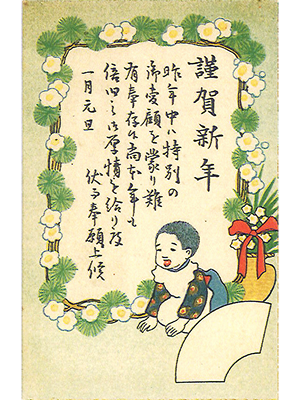 謹賀新年
昨年中ハ特別の
御愛顧を蒙り難
有奉存候尚本年も
倍旧之御厚情を給り度
伏而奉願上候
一月元旦